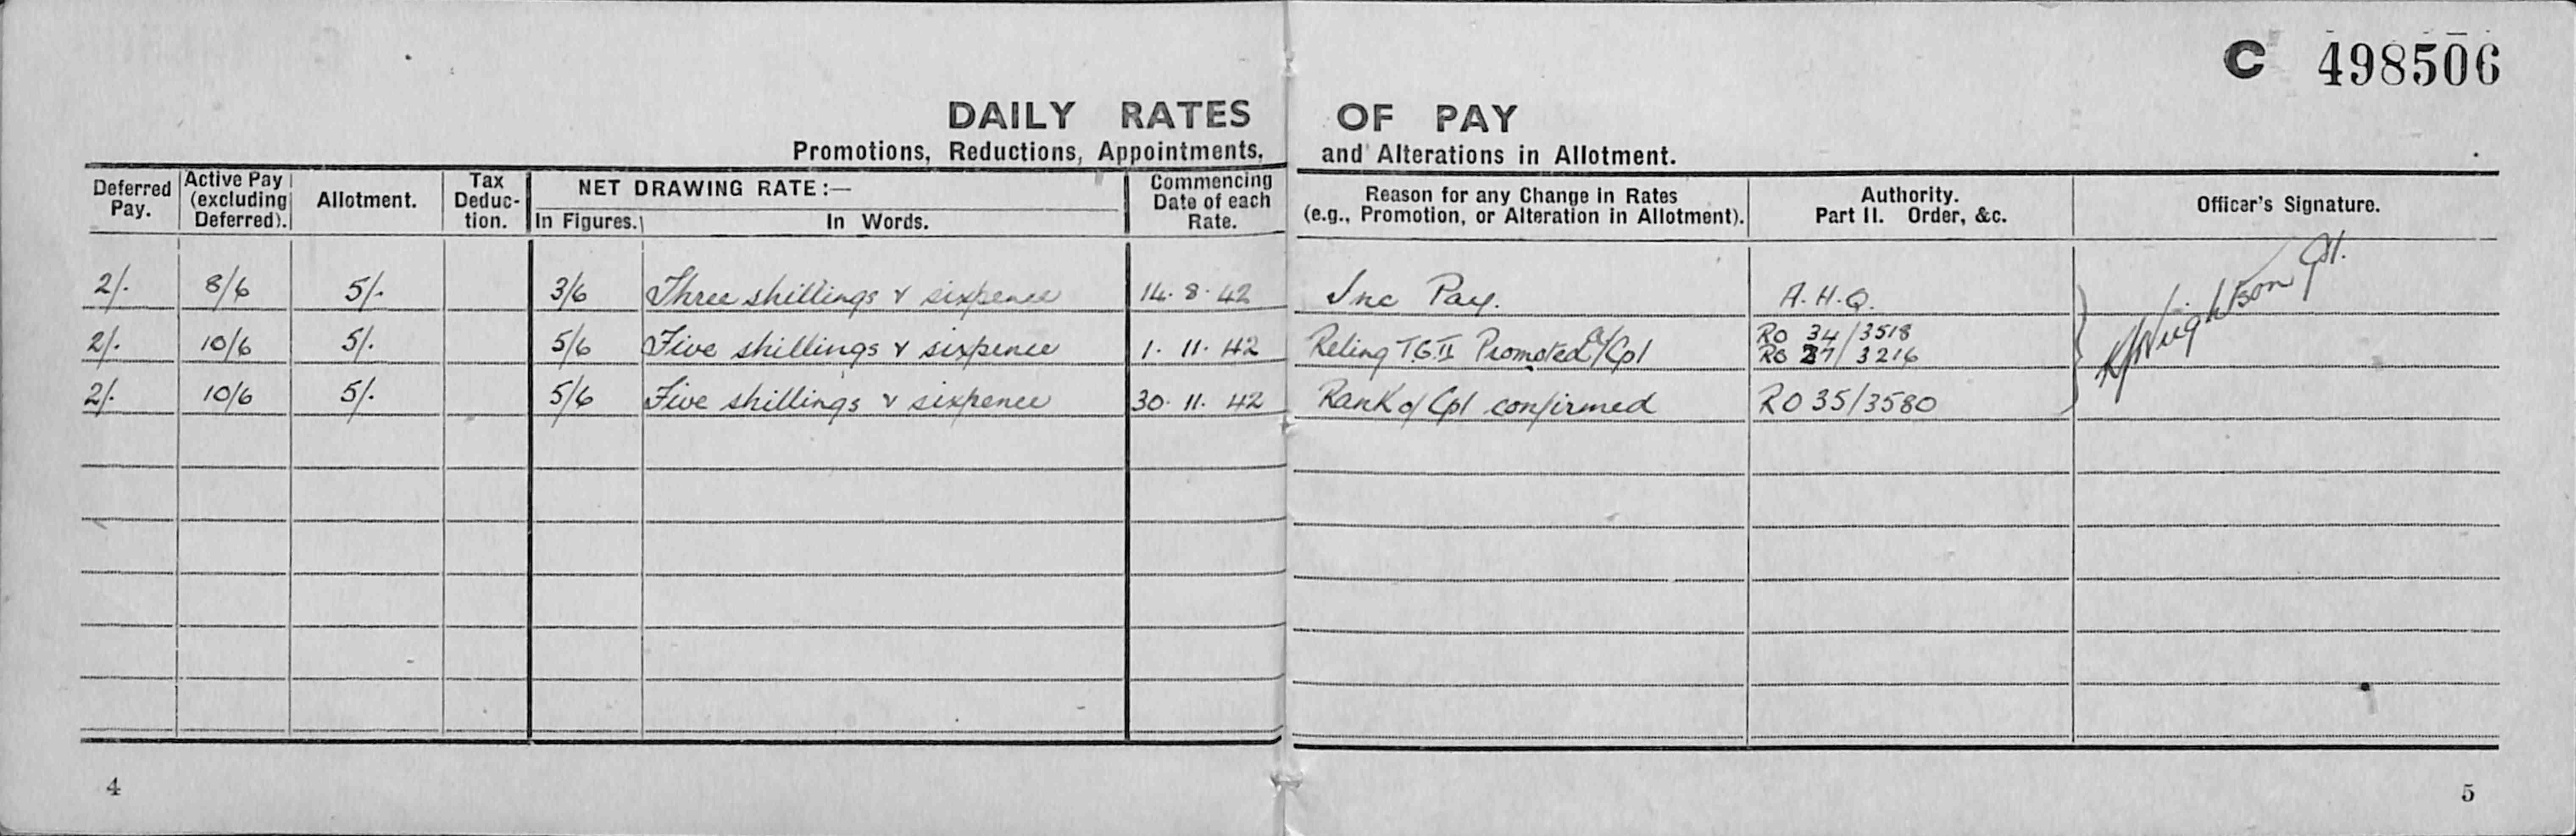 C 498506
DAILY RATES OF PAY
Promotions, Reductions, Appointments, and Alterations in Allotment.
Deferred Pay. Active Pay (excluding Deferred). Allotment. Tax Deduc-tion. NET DRAWING RATE:— In Figures. In Words. Commencing Date of each Rate. Reason for any Change in Rates (e.g., Promotion, or Alteration in Allotment). Authority. Part II. Order, &c. Officer's Signature.
2/. 8/6 5/. 3/6 Three shillings & sixpence 14. 8. 42 Inc Pay. A.H.Q.
2/. 10/6 5/. 5/6 Five shillings & sixpence 1. 11. 42 TG.II Promoted a/Cpl RO 34/3518
RO 37/3216
2/. 10/6 5/. 5/6 Five shillings & sixpence 30. 11. 42 Rank of Cpl confirmed RO 35/3580
4
5